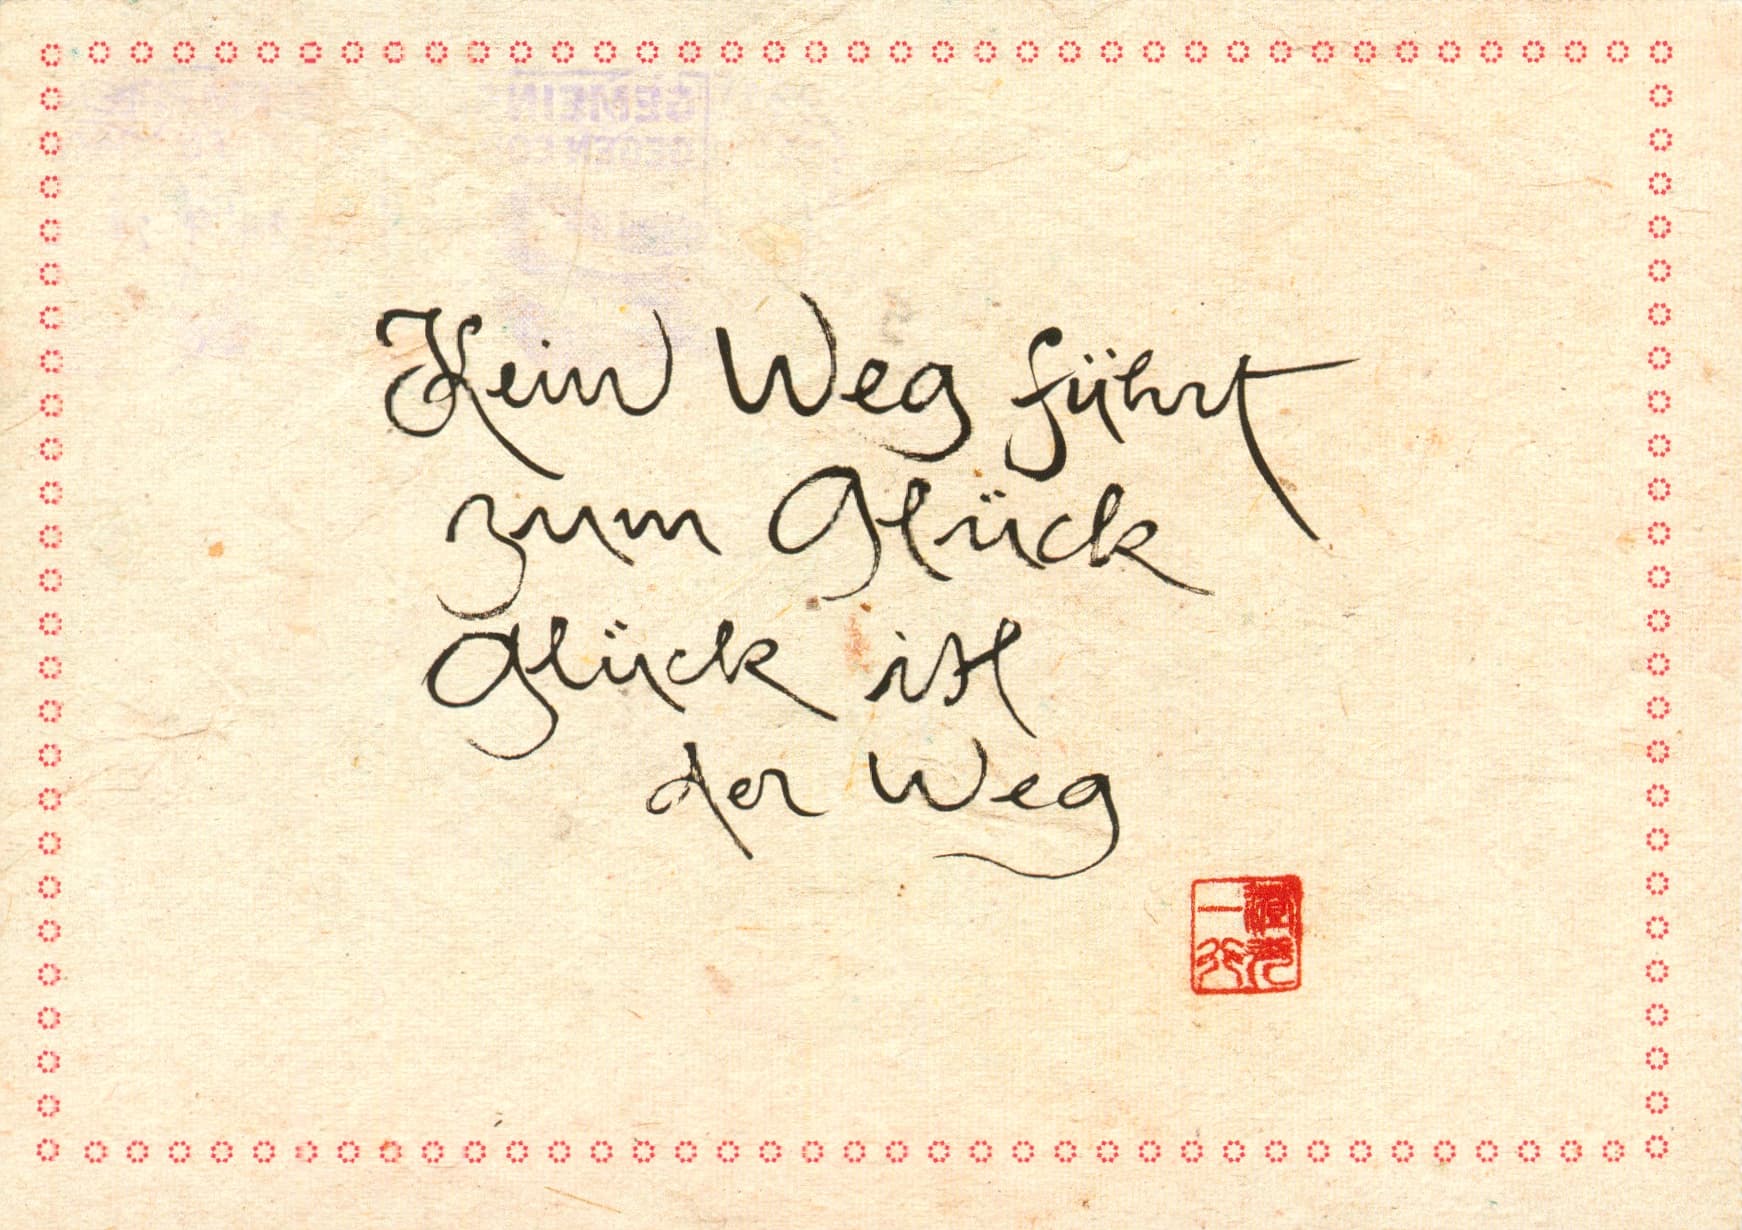 Kein Weg führt
zum Glück
Glück ist
der Weg
一行